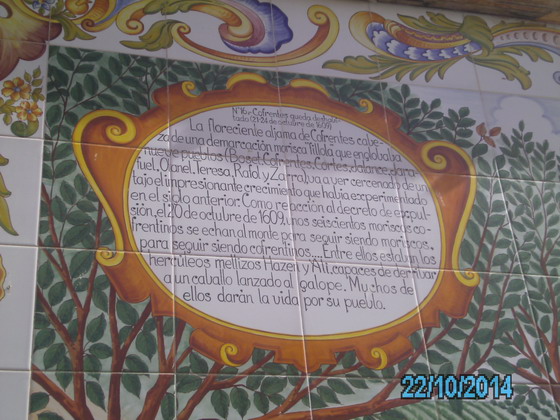 Nº16.- Cofrentes queda despobla-
tado (21-24 de octubre de 1609)
La floreciente aljama de Cofrentes, cabe-
za de una demarcación morisca
que englobaba
nueve pueblos (Bosel, Cofrentes, Cortes,
fuel, Otanel, Teresa, Rafol y Zarra) va a ver cercenado de un
tajo el impresionante crecimiento que había experimentado
en el siglo anterior. Como reacción al decreto de expul-
sión, el 20 de octubre de 1609, unos seiscientos moriscos co-
frentinos se echan al monte para seguir siendo moriscos,
para seguir siendo cofrentinos... Entre ellos están los
hercúleos mellizos Hazen y Alí, capaces de derribar
a un caballo lanzado al galope. Muchos de
ellos darán la vida por su pueblo.
22/10/2014